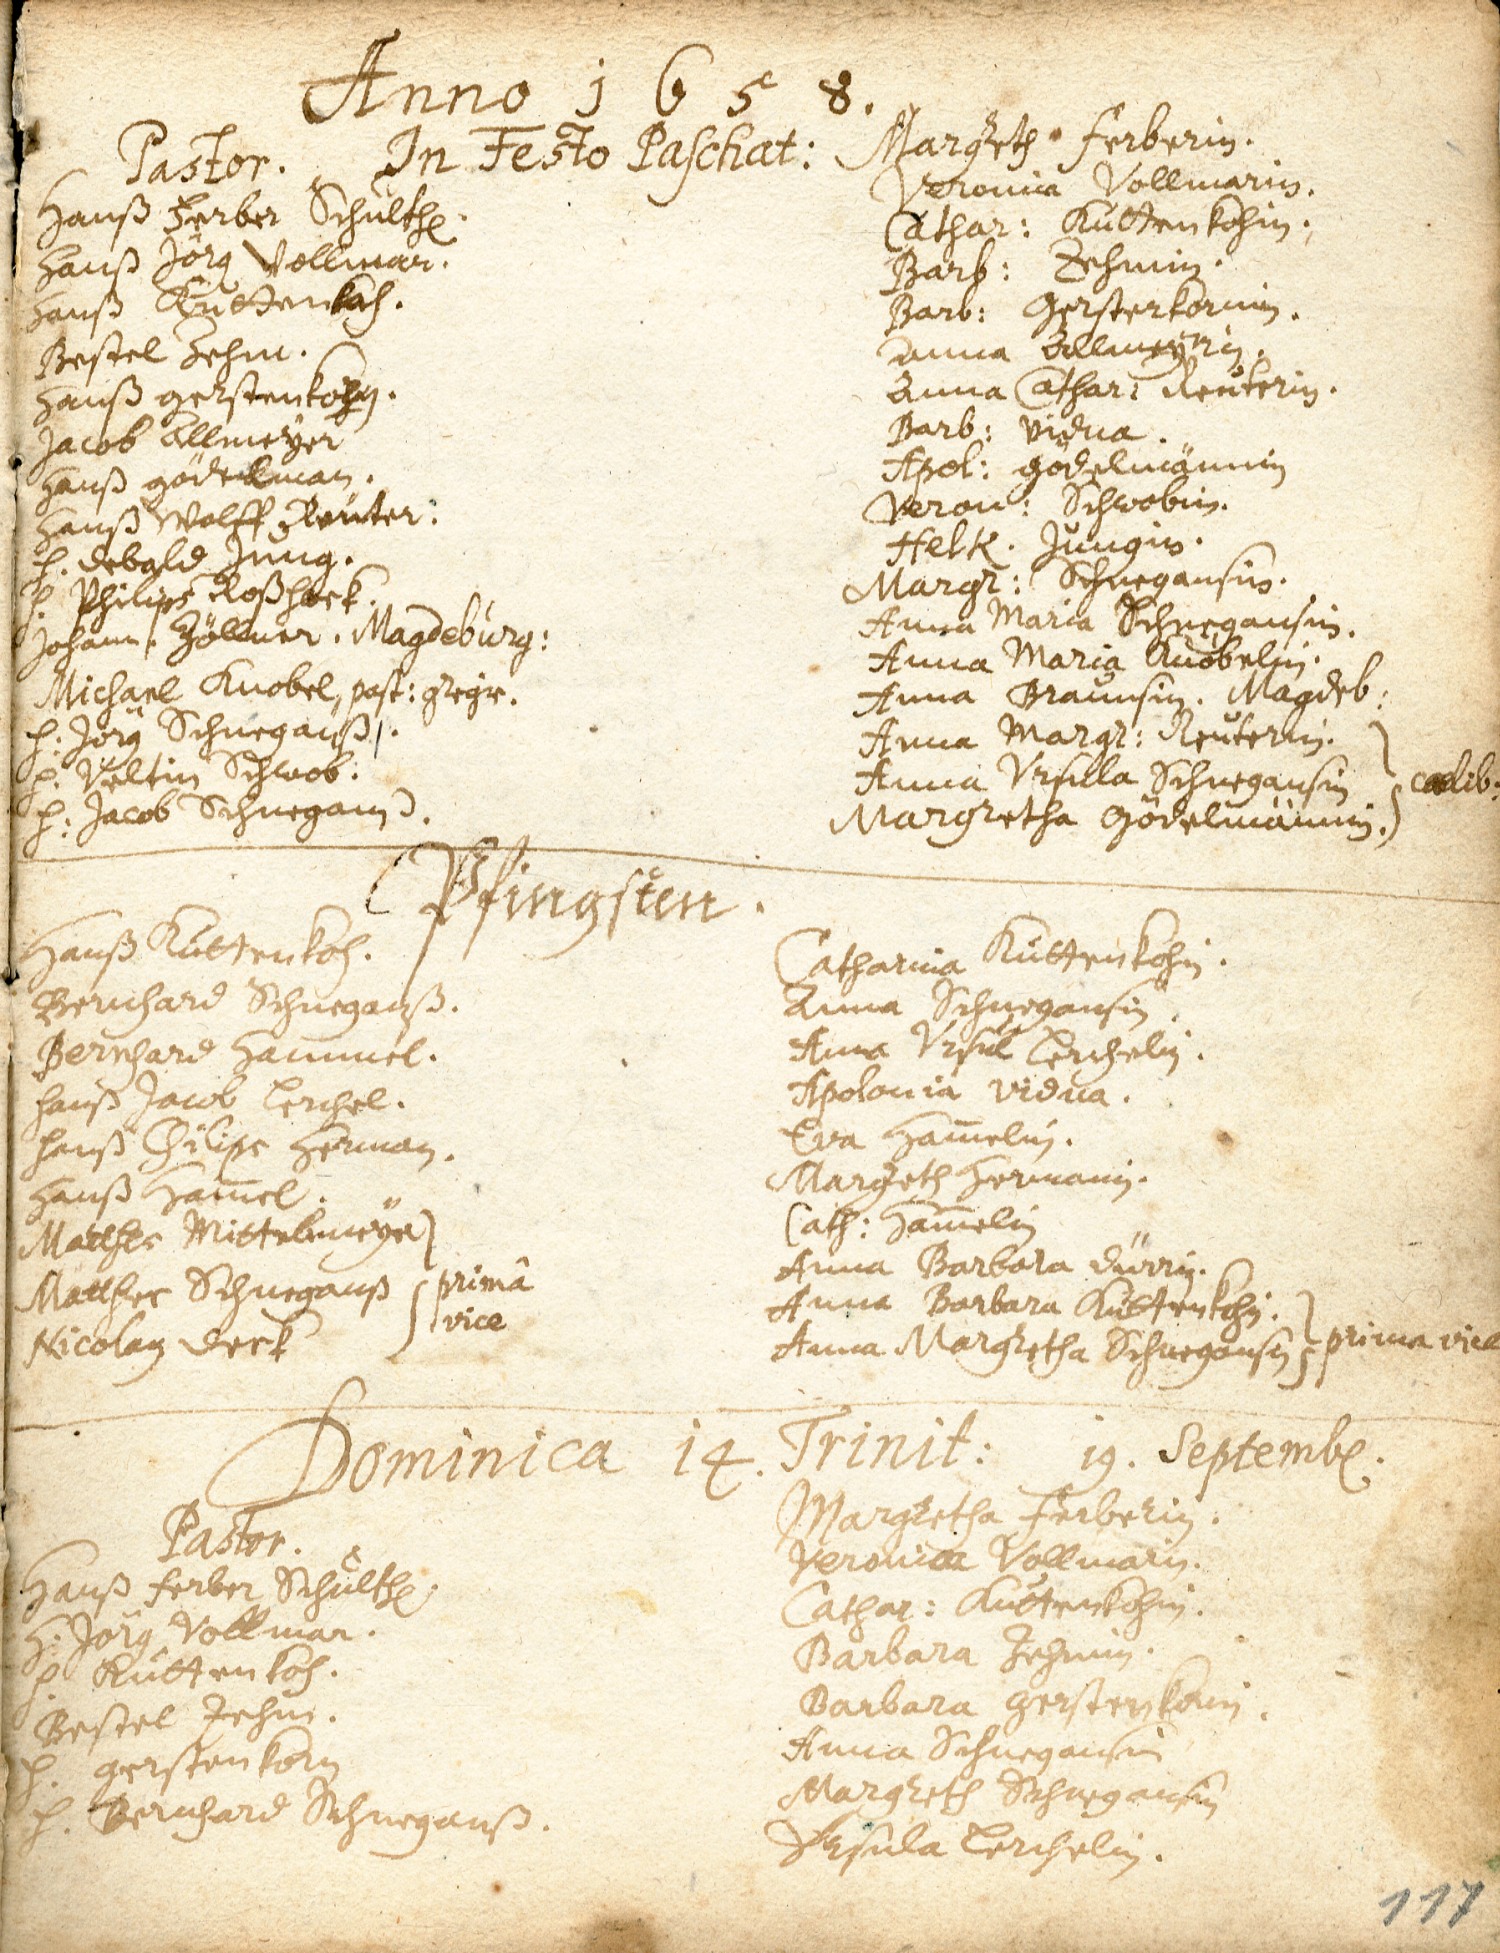 Anno 1658.
Pastor. In Festo Paschat:
Hanß Ferber Schulth.
Hanß Jörg Vollmar.
Hanß Kuttenkoh.
Bestel Zehm.
Hanß gerstenkorn.
Jacob Allmeyer
Hanß gödelman.
Hanß Wolff Reuter:
H. debold Jung.
H. Philips Roßheck.
Johann Zöllner. Magdeburg:
Michael Knobel, past: gregr.
H: Jörg Schneganß.
H. Veltin Schwob.
H: Jacob Schnegans.
Margreth Ferberin.
Veronica Vollmarin.
Cathar: Kuttenkohin.
Barb: Zehmin.
Barb: Gersterkornin.
Anna Allmeyrin.
Anna Cathar: Reuterin.
Barb: vidua.
Apol: Gödelmännin
Veron: Schwobin.
Jungin.
Margr: Schnegansin.
Anna Maria Schnegansin.
Anna Maria Knobelin.
Anna Braunsin. Magdeb:
Anna Margr: Reuterin.
Anna Ursula Schnegansin cœlib:
Margretha Gödelmännin.
Pfingsten.
Hanß Kuttenkoh.
Bernhard Schneganß.
Bernhard Hammel.
Hanß Jacob Lerchel.
Hanß Philips Herman.
Hanß Ham̅el.
Matthes Mittelmeyer
Matthes Schneganß primâ
Nicolay Deck vice
Catharina Kuttenkohin.
Anna Schnegansin.
Anna Ursul Lerchelin.
Apolonia vidua.
Eva Ham̅elin.
Margreth Hermanin.
Cath: Ham̅elin
Anna Barbara Dürrin.
Anna Barbara Kuttenkohin.
Anna Margretha Schnegansin prima vice
Dominica 14. Trinit: 19. Septemb.
Pastor.
Hanß Ferber Schulth.
H: Jörg Vollmar.
H Kuttenkoh.
Bestel Zehm.
H. gerstenkorn
H. Bernhard Schneganß.
Margretha Ferberin.
Veronica Vollmarin.
Cathar: Kuttenkohin.
Barbara Zehmin.
Barbara gerstenkornin.
Anna Schnegansin
Margreth Schnegansin
Ursula Lerchelin.
117